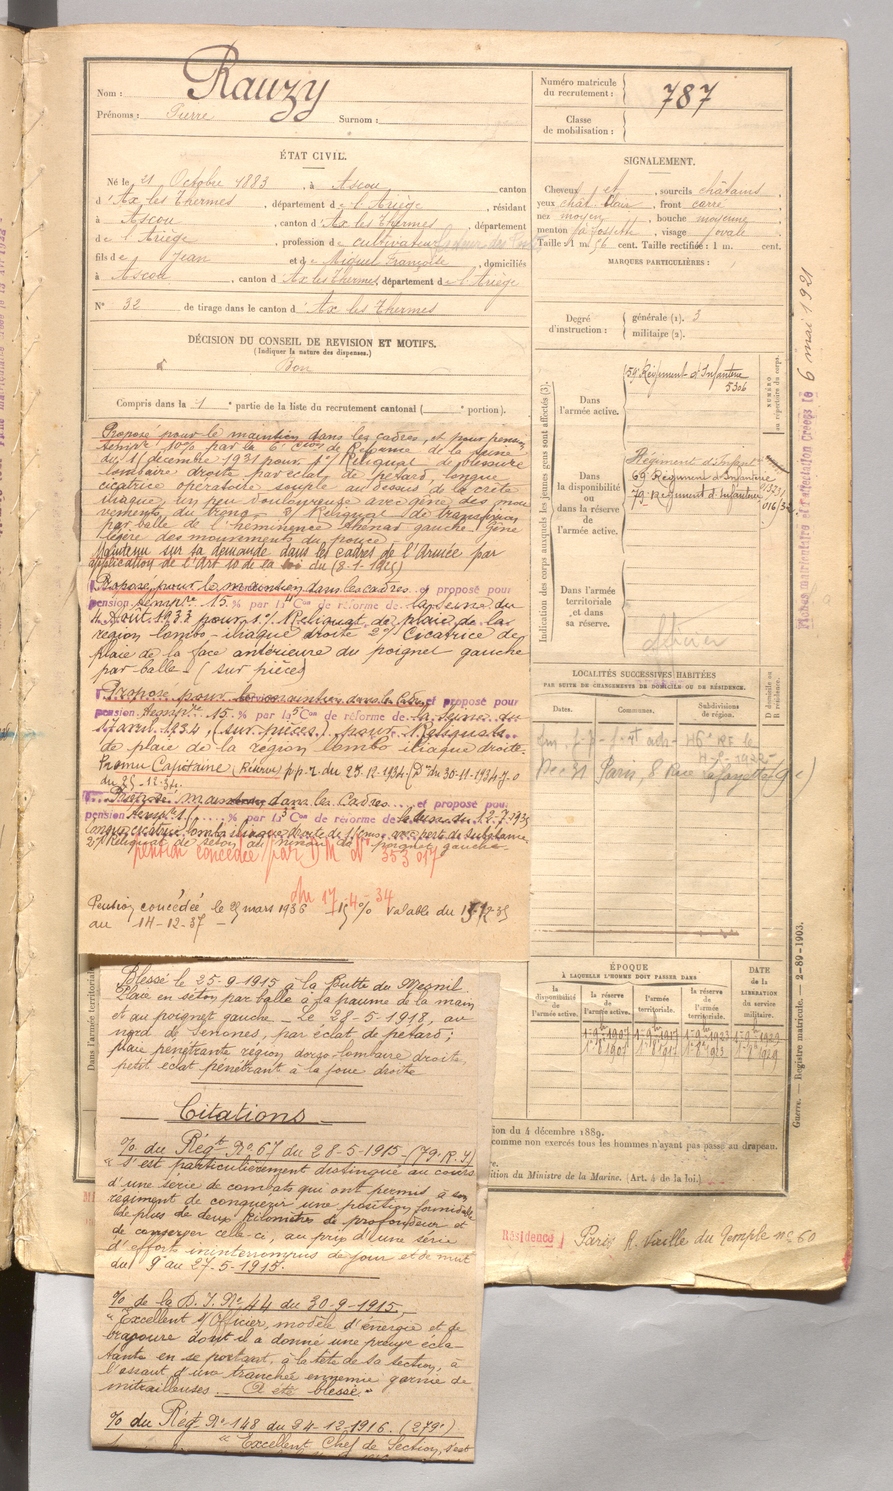 Nom : Rauzy
Prénoms : Pierre Surnom :
Numéro matricule du recrutement : 787
Classe de mobilisation :
ÉTAT CIVIL.
Né le 21 Octobre 1883, à Ascou, canton
d'Ax les Thermes, département de l'Ariège, résidant
à Ascou, canton d'Ax les Thermes, département
de l'Ariège, profession de cultivateur
fils de Jean et de Miquel Françoise, domiciliés
à Ascou, canton d'Ax les Thermes, département de l'Ariège
N° 32 de tirage dans le canton d'Ax les Thermes
DÉCISION DU CONSEIL DE REVISION ET MOTIFS.
(Indiquer la nature des dispenses.)
Bon
Compris dans la 1 e partie de la liste du recrutement cantonal ( e portion).
SIGNALEMENT.
Cheveux et, sourcils châtains,
yeux chât. clair, front carré
nez moyen, bouche moyenne
menton à fossette, visage ovale
Taille : 1 m. 56 cent. Taille rectifiée : 1 m. cent.
MARQUES PARTICULIÈRES :
Degré d'instruction : générale (1). 3
militaire (2).
Indication des corps auxquels les jeunes gens sont affectés (3).
Dans l'armée active.
59e Régiment d'Infanterie
5306
NUMÉRO au répertoire du corps.
Dans la disponibilité ou dans la réserve de l'armée active.
Régiment d'Infant
69 Régiment d'Infanterie
79e Régiment d'Infanterie
Dans l'armée territoriale et dans sa réserve.
Fiches matriculaire et d'affectation créées le 6 mai 1921
Proposé pour le maintien dans les cadres, et pour pension
tempre 10% par la 6e Cion de Réforme de la Seine
du 15 décembre 1931 pour 1°/ Reliquat de blessure
lombaire droite par éclat de pétard, longue
cicatrice opératoire souple au dessus de la crête
iliaque, un peu douloureuse avec gêne des mou
vements du tronc. 2/ Reliquat de transfixion
par balle de l'héminence thénar gauche. Gêne
légère des mouvements du pouce.
Maintenu sur sa demande dans les cadres de l'Armée par
application de l'Art 10 de la loi du (8-1-1925)
Proposé pour le maintien dans les cadres et proposé pour
pension tempre 15 % par la 4e Con de réforme de la Seine du
4 Août 1933 pour 1°/ Reliquat de plaie de la
région lombo-iliaque droite 2°/ Cicatrice de
plaie de la face antérieure du poignet gauche
par balle - (sur pièces)
Proposé pour le maintien dans les Cadres et proposé pour
pension temp re 15 % par la 5e Con de réforme de la Seine du
17 avril 1934, (sur pièces) pour Reliquats
de plaie de la région lombo iliaque droite.
Promu Capitaine (Réserve) p.p. r. du 25.12.1934 (D. du 30-11-1934 J.O
du 25-12-34.
maintenu dans les Cadres et proposé pour
pension % par la Con de réforme de la Seine du 12-7-1935
longue cicatrice lombo iliaque droite de 11 cmes, avec perte de substance
2°/ Reliquat de séton au niveau du poignet gauche.
pension concédée par D M N° 353 017
du 17-4-34
Pension concédée le 25 mars 1936 15% valable du
au 14-12-37 -
LOCALITÉS SUCCESSIVES HABITÉES
PAR SUITE DE CHANGEMENTS DE DOMICILE OU DE RÉSIDENCE.
Dates. Communes. Subdivisions de région. D domicile ou R résidence.
Paris, 8 Rue Lafayette (9e)
ÉPOQUE
À LAQUELLE L'HOMME DOIT PASSER DANS
la disponibilité de l'armée active. la réserve de l'armée active. l'armée territoriale. la réserve de l'armée territoriale.
DATE de la LIBÉRATION du service militaire.
1er 9bre 1907 1er 9bre 1917 1er 9bre 1923 1er 9bre 1929
Guerre. — Registre matricule. — 2-89-1903.
Dans l'armée territoriale
Blessé le 25-9-1915 à la Butte du Mesnil
Plaie en séton par balle à la paume de la main
et au poignet gauche. Le 28-5-1918, au
nord de Senones, par éclat de pétard ;
plaie pénétrante région dorso-lombaire droite,
petit éclat pénétrant à la joue droite
Citations
% du Régt N° 67 du 28-5-1915 - (79e R.I)
"S'est particulièrement distingué au cours
d'une série de combats qui ont permis à son
régiment de conquérir une position formidable
de plus de deux kilomètres de profondeur et
de conserver celle-ci, au prix d'une série
d'efforts ininterrompus de jour et de nuit
du 9 au 27-5-1915.
% de la D.I. N° 44 du 30-9-1915,
"Excellent S/Officier, modèle d'énergie et de
bravoure dont il a donné une preuve écla-
tante en se portant, à la tête de sa section, à
l'assaut d'une tranchée ennemie garnie de
mitrailleuses. A été blessé."
% du Régt N° 148 du 24-12-1916. (279e)
"Excellent Chef de Section, s'est
ion du 4 décembre 1889.
comme non exercés tous les hommes n'ayant pas passé au drapeau.
ition du Ministre de la Marine. (Art. 4 de la loi.)
Résidence Paris R. Vieille du Temple n° 60